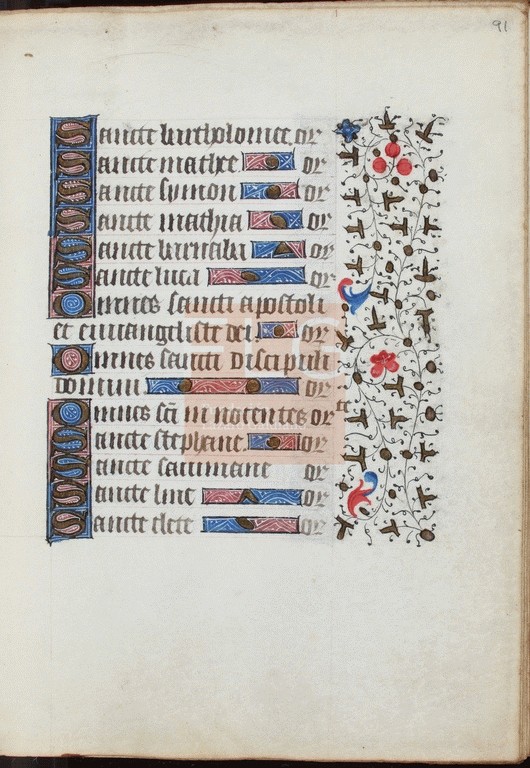 91
Sancte bartholomee or
Sancte mathee or
Sancte symon or
Sancte mathia or
Sancte barnaba or
Sancte luca or
Omnes sancti apostoli
et euuangeliste dei. or
Omnes sancti discipuli
domini or
Omnes sc̄i innocentes or
Sancte stephane. or
Sancte
or
Sancte line or
Sancte clete or